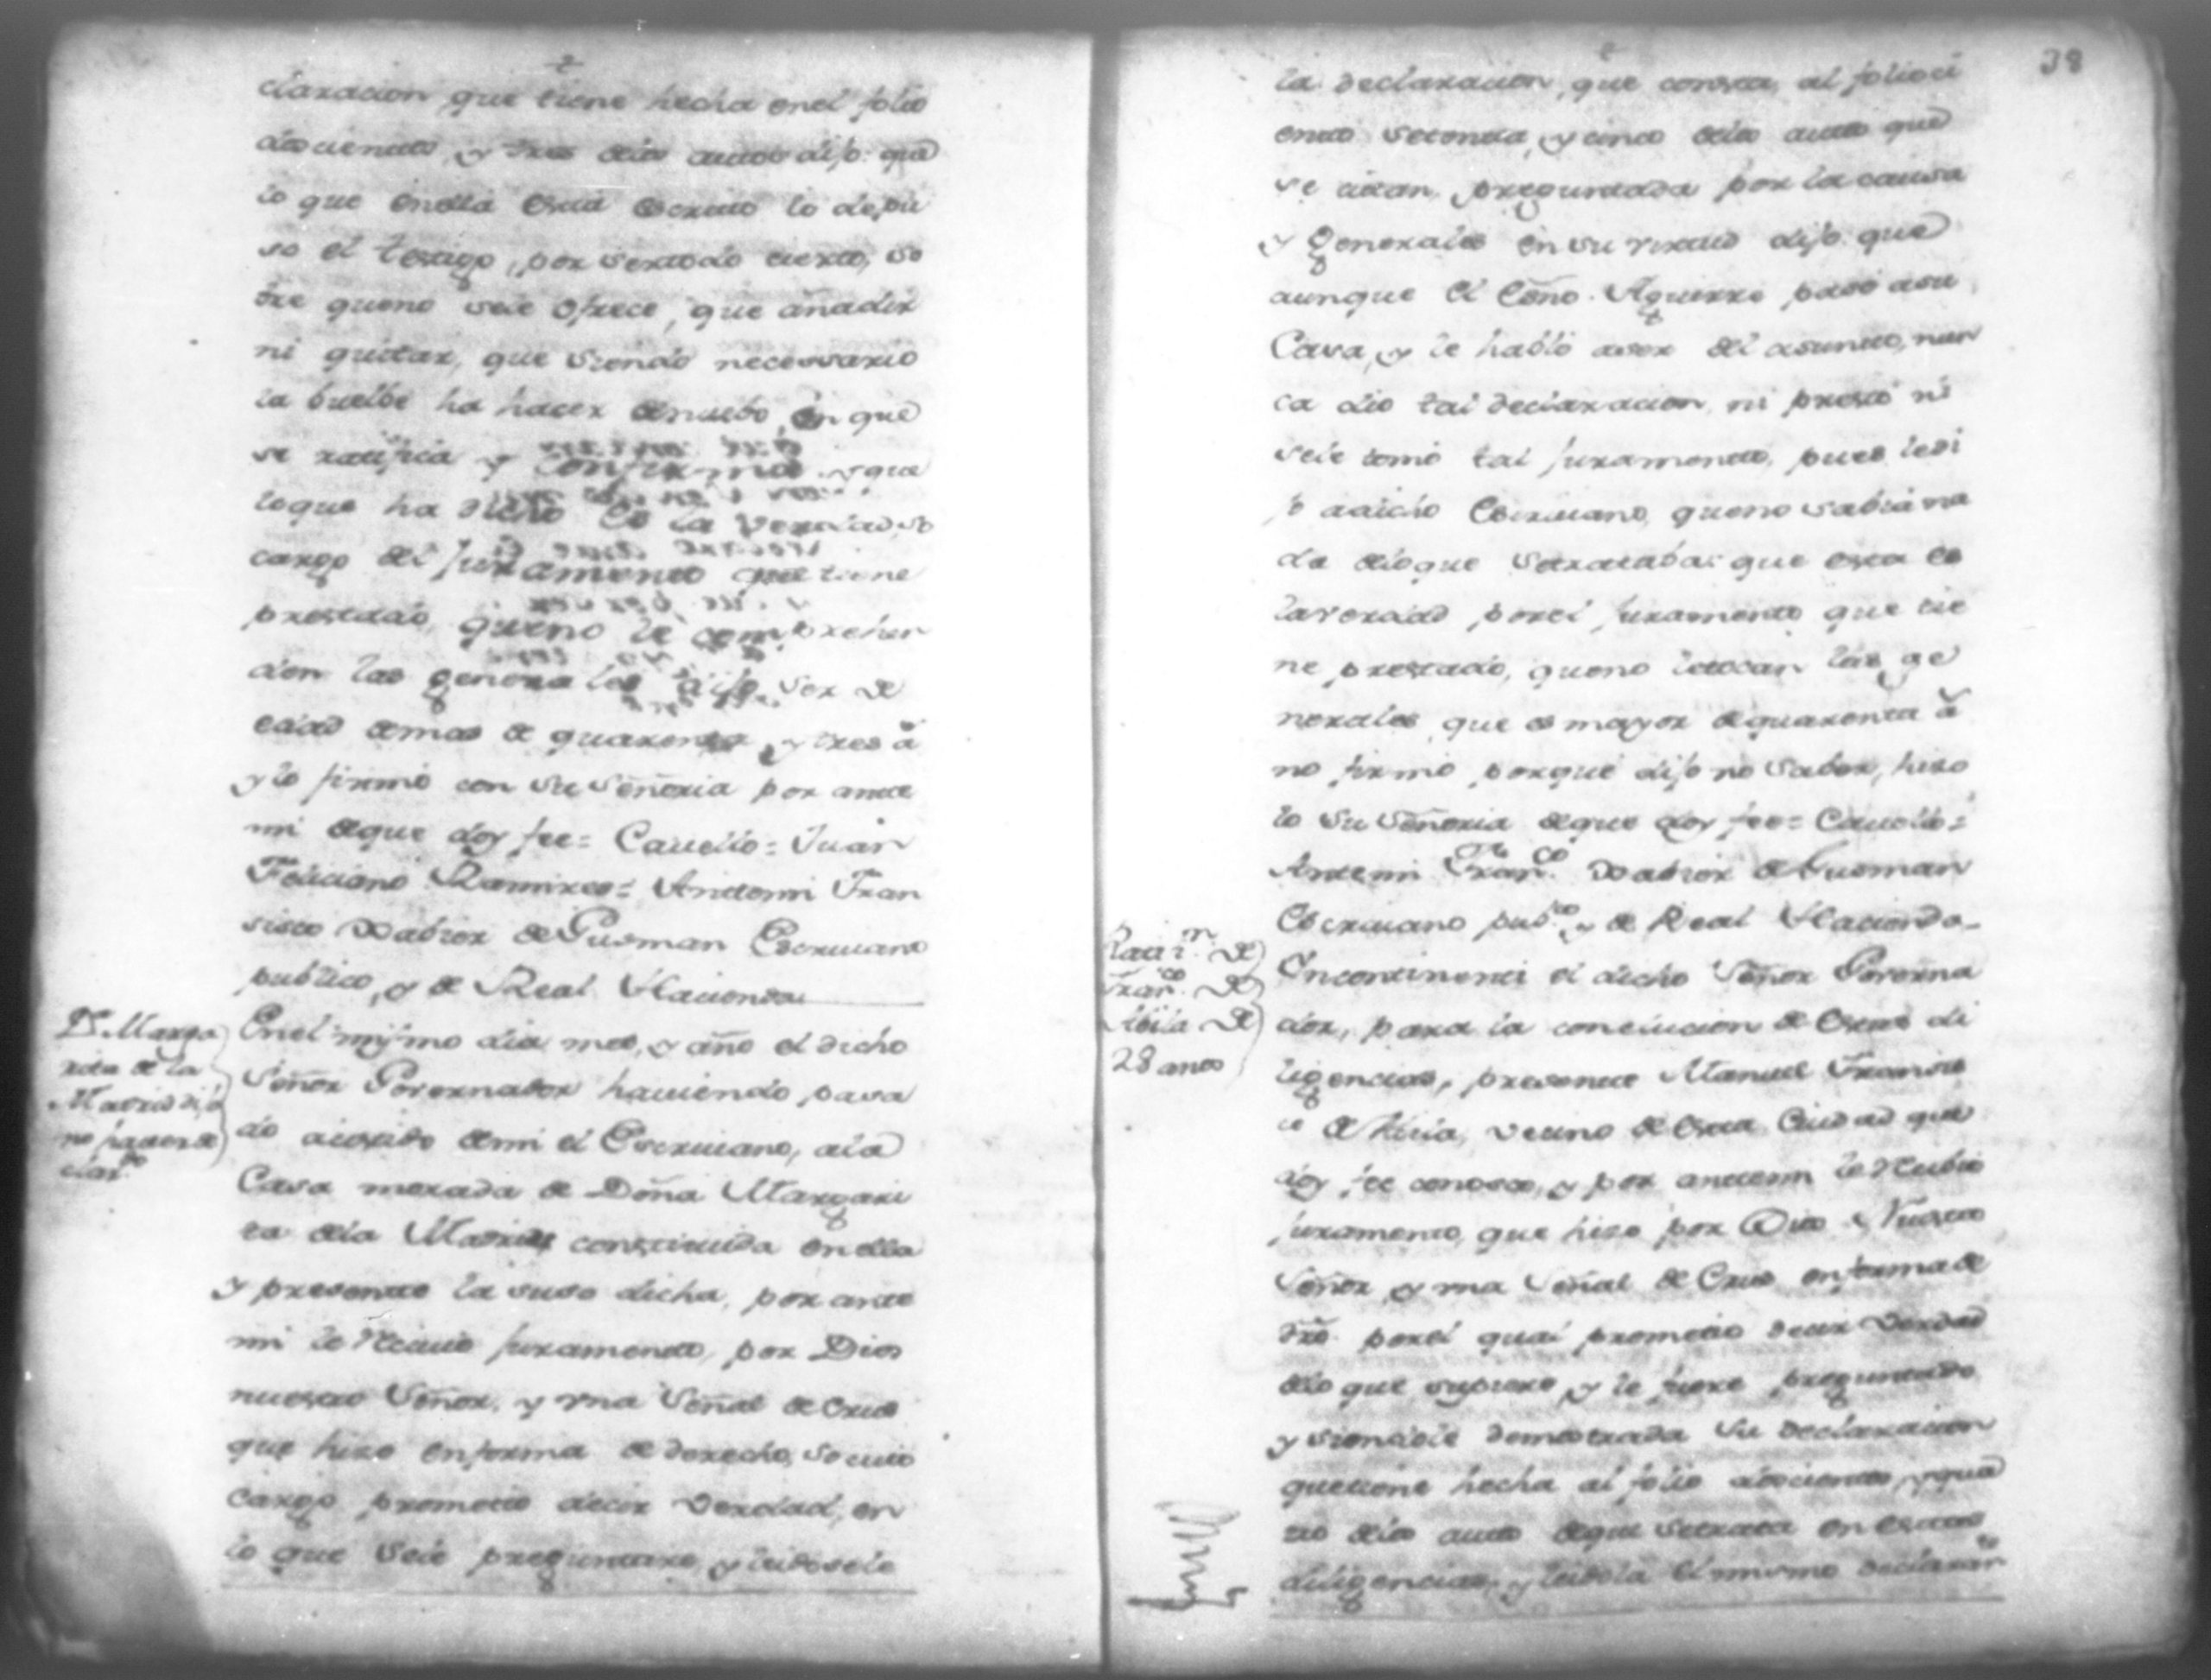 claracion que tiene hecha enel folio
doscientos, y tres delos autos dijo: que
lo que enella está escrito lo depu
so el testigo, por sertodo cierto, so
bre queno sele ofrece, que añadir
ni quitar, que siendo necessario
la buelbe ha hacer denuebo, en que
se ratifica y confirma, y que
loque ha dicho es la verdad, so
cargo del juramento que tiene
prestado, queno le comprehen
den las generales dijo, ser de
edad demas de quarenta, y tres a.ˢ
y lo firmó con su señoria por ante
mi deque doy fee = Cauello = Juan
Feliciano Ramires = Antemi Fran
sisco Xabier de Gusman Escriuano
publico, y de Real Hacienda
D.ª Marga
rita de la
Madrid dijo
no haver de
clar.do
Enel mismo dia mes, y año el dicho
Señor Governador haviendo pasa
do asistido demi el Escriuano, ala
Casa morada de Doña Margari
ta dela Madrid constituida enella
y presente la suso dicha, por ante
mi le Reciuió juramento, por Dios
nuestro Señor, y vna Señal de Crus
que hizo enforma de derecho, so cuio
cargo prometió decir Verdad, en
lo que sele preguntare, y leidosele
38
la declaracion, que consta, al folioci
ento setenta, y cinco delos autos que
se citan, preguntada por la causa
y Generales en su virtud dijo: que
aunque el Essno. Aguirre pasó asu
Casa, y le habló aser del asunto, nun
ca dio tal declaracion, ni prestó ni
sele tomó tal juramento, pues ledi
jo adicho Escriuano, queno sabia na
da deloque setrataba: que esta es
laverdad porel juramento que tie
ne prestado, queno letocan las ge
nerales, que es mayor dequarenta a.ˢ
no firmó porque dijo no saber, hiso
lo su señoria deque doy fee = Cauello =
Antemi Fran.co Xabier de Gusman
Escriuano pub.co y de Real Hacienda
Ratt.n De
Fran.co De
Abila De
28 años
Encontinenti el dicho Señor Governa
dor, para la conclucion de estas di
ligencias, presente Manuel Fransis
co de Abila, vecino de esta Ciudad que
doy fee conosco, y por antemi le Recibió
juramento, que hizo por Dios Nuestro
Señor y vna señal de Crus enforma de
dro. porel qual prometió decir Verdad
delo que supiere, y le fuere preguntado
y siendole demostrada su declaracion
quetiene hecha al folio doscientos, y qua
tro delos autos deque setrata en estas
diligencias, y leidola el mismo declaran.te